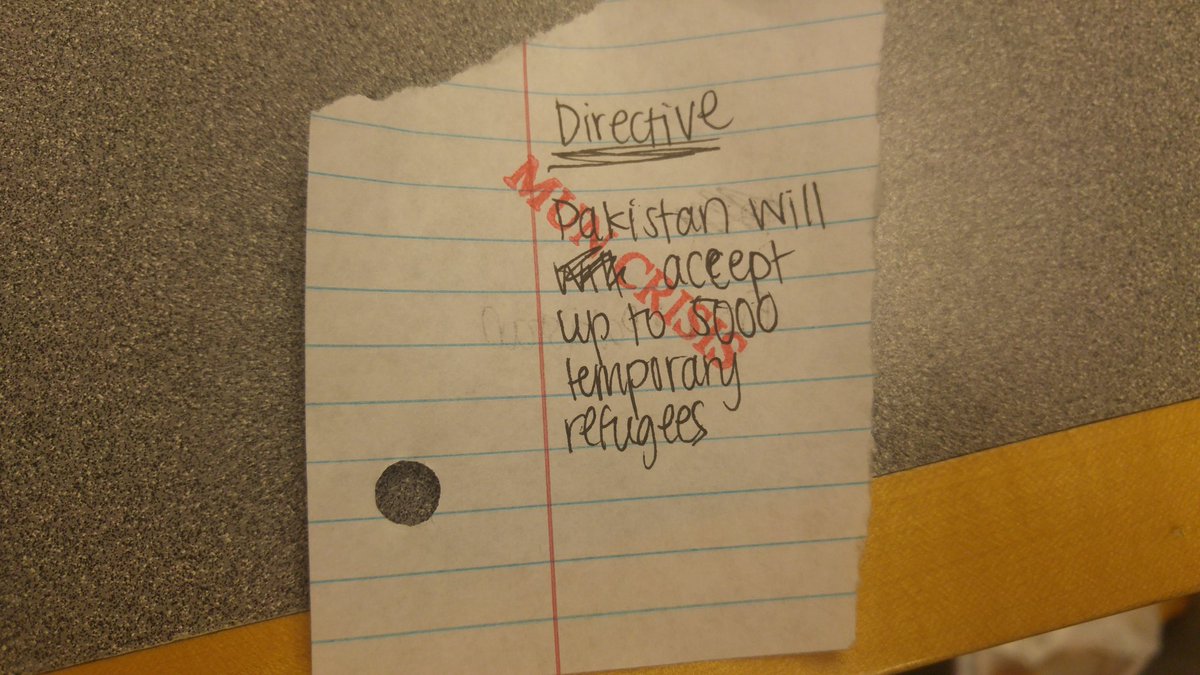 Directive
MUN CRISIS
Pakistan will
accept
up to 5000
temporary
refugees